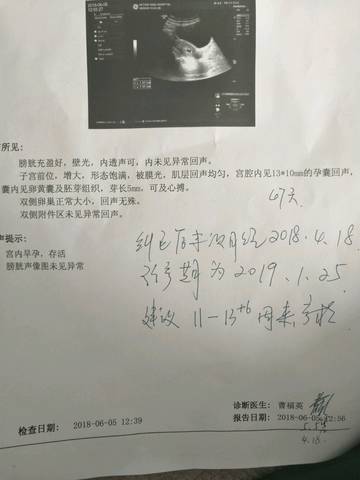 2018-06-05
所见:
膀胱充盈好，壁光，内透声可，内未见异常回声。
子宫前位，增大，形态饱满，被膜光，肌层回声均匀，宫腔内见13*10mm的孕囊回声，
囊内见卵黄囊及胚芽组织，芽长5mm，可及心搏。
双侧卵巢正常大小，回声无殊。
双侧附件区未见异常回声。
47天
声提示:
宫内早孕，存活
膀胱声像图未见异常
纠正后末次月经2018.4.18
预产期为2019.1.25
建议11-13+6周来
诊断医生: 曹福英
检查日期: 2018-06-05 12:39
报告日期: 2018-06-05 12:56
4.18.